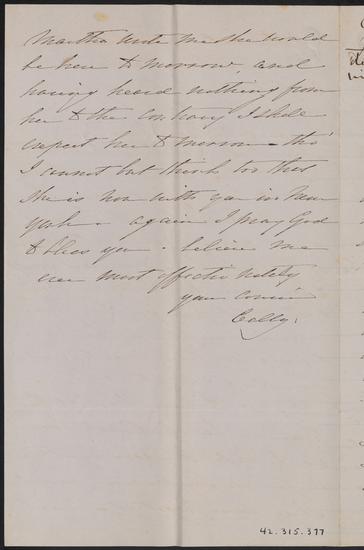 Martha wrote me she would
be here to morrow, and
having heard nothing from
her to the contrary I shall
expect her to morrow - tho'
I cannot but think too that
she is now with you in New
York - again I pray God
to bless you - believe me
ever most affectionately
your cousin
Cally.
42.315.377